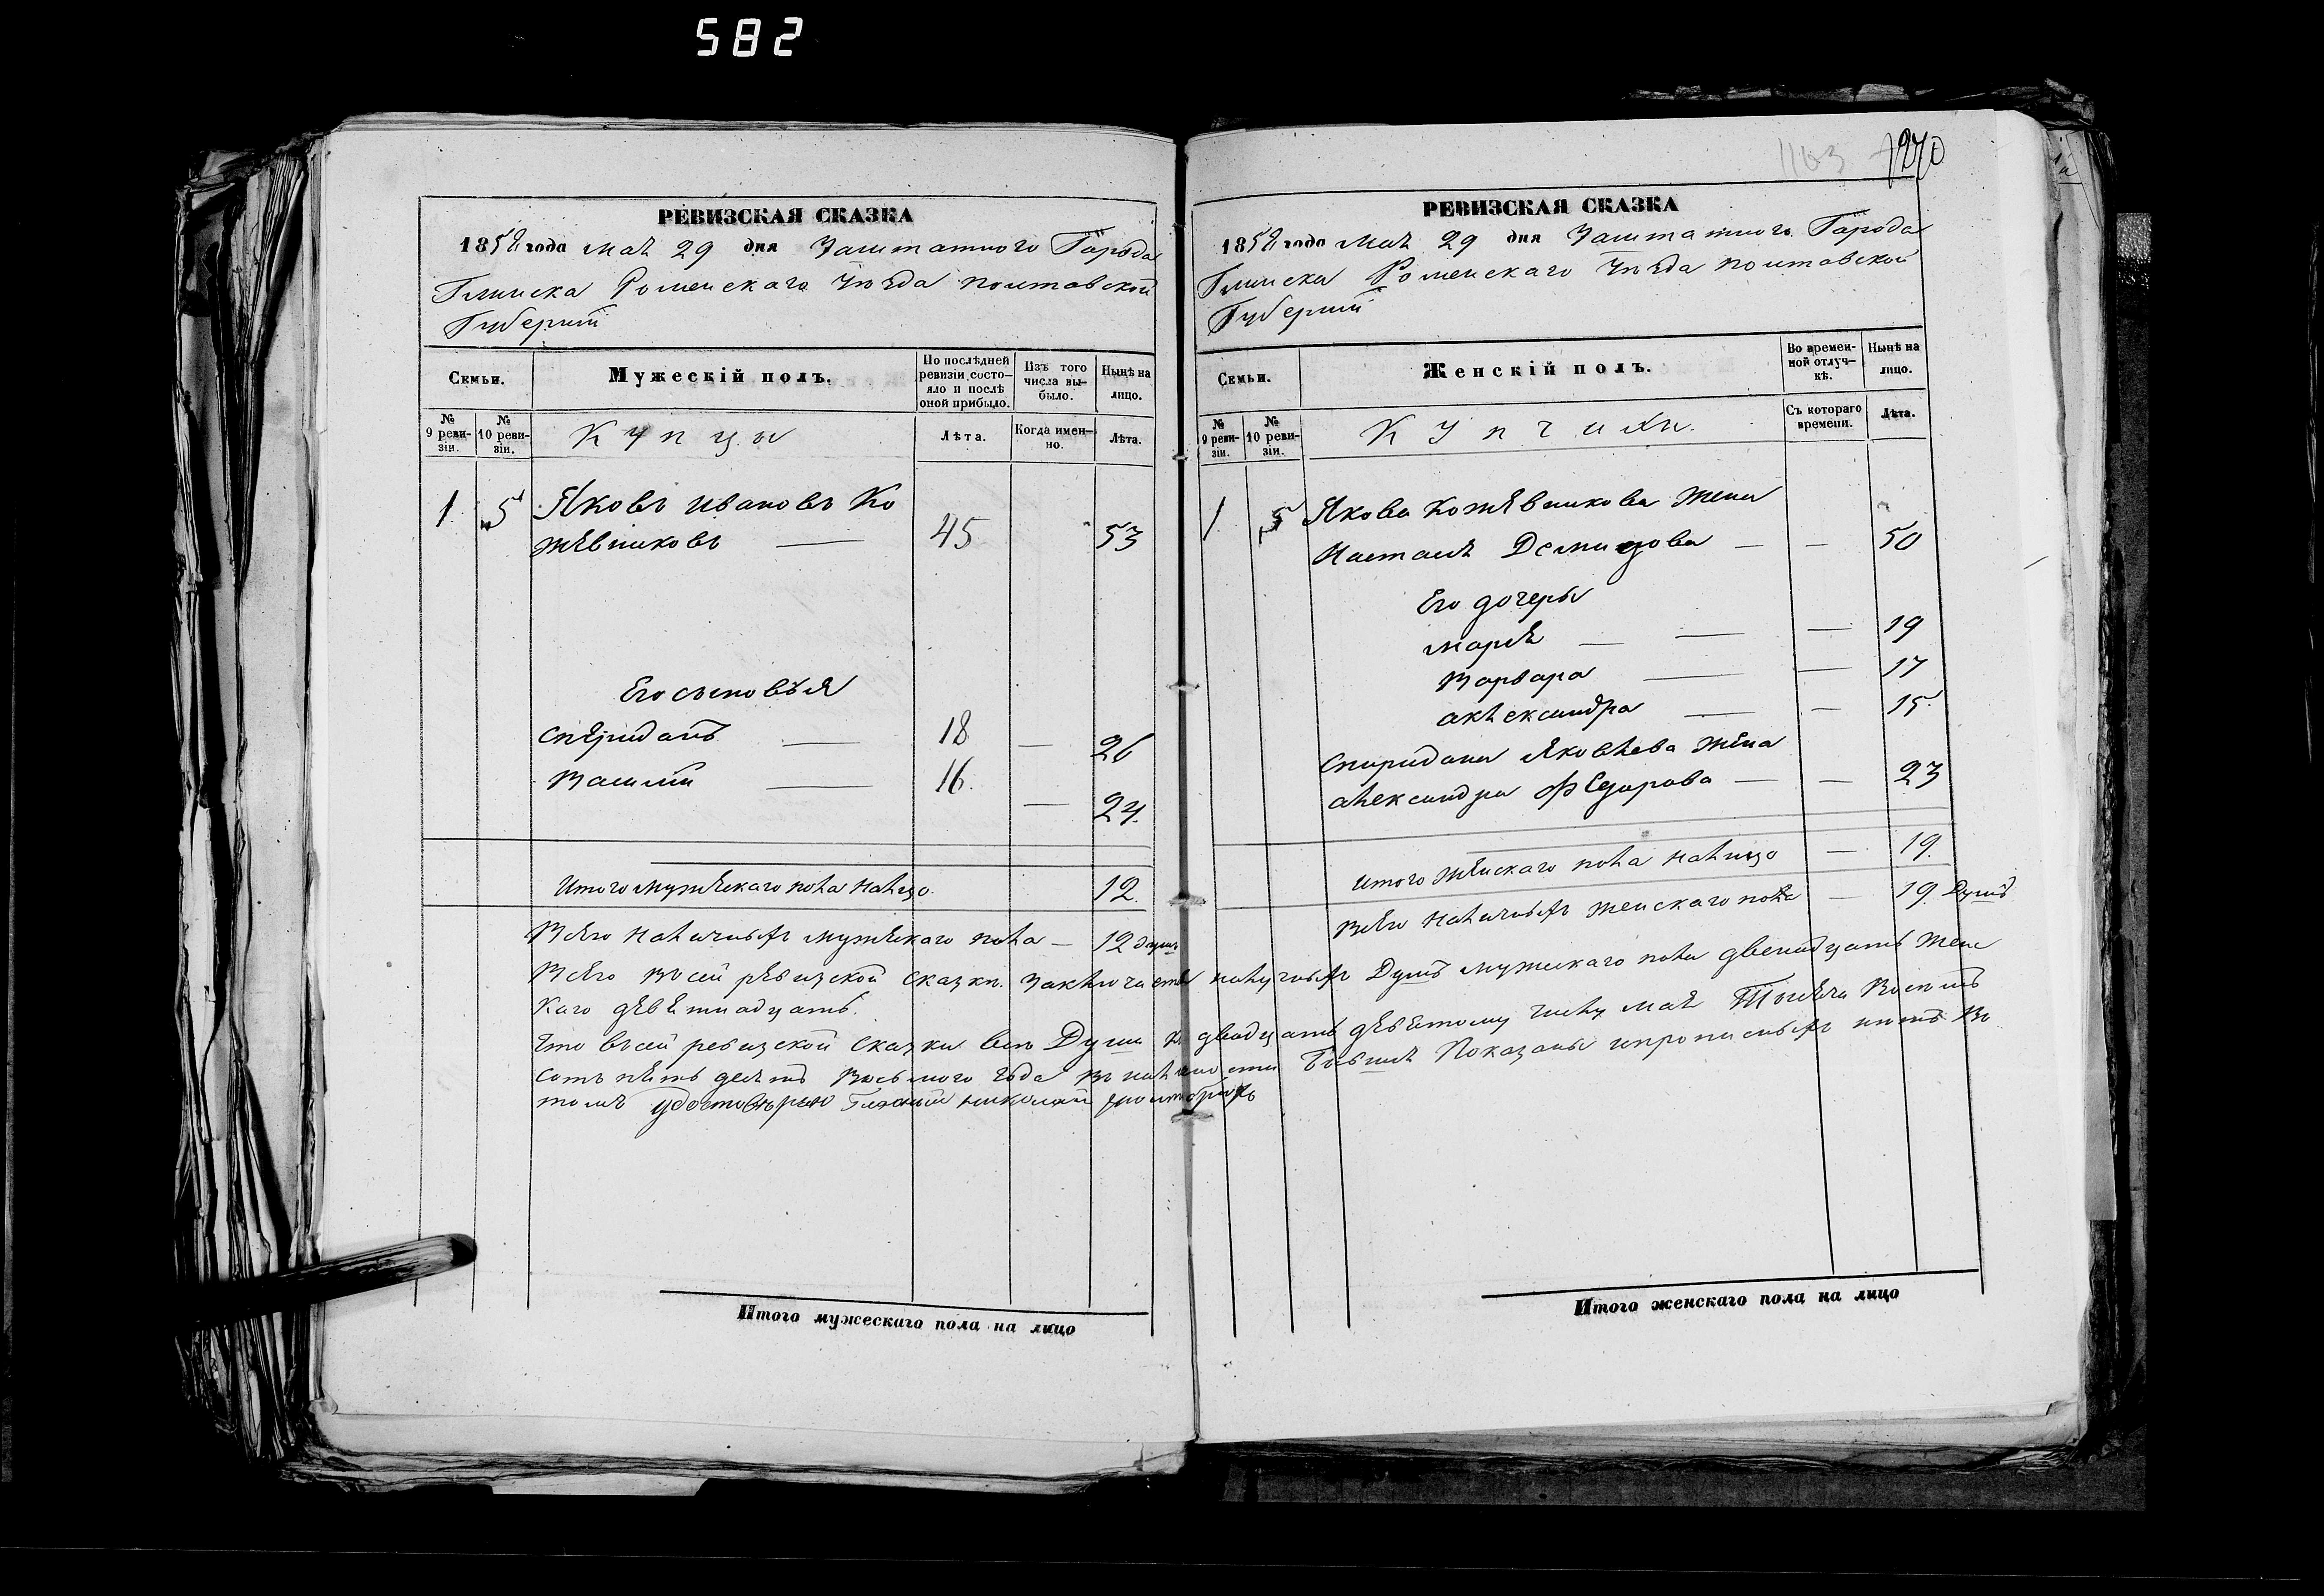 582
РЕВИЗСКАЯ СКАЗКА
1858 года мая 29 дня Заштатного Города
Глинска Роменскаго Уѣзда полтавской
Губерний
Семьи.
Мужескій полъ.
По послѣдней ревизіи состо-
яло и послѣ оной прибыло.
Изъ того числа вы-
было.
Нынѣ на лицо.
№ 9 реви-
зіи.
№ 10 реви-
зіи.
Купцы
Лѣта.
Когда имен-
но.
Лѣта.
1 5 Яковъ ивановъ Ко
жѣвниковъ — 45 53
Его сыновъя
спѣридонъ — 18 — 26
Василий — 16. — 24.
Итого мужѣскаго пола налицо. 12.
Всѣго наличныхъ мужѣскаго пола — 12 душъ
Итого мужескаго пола на лицо
1163 1270
РЕВИЗСКАЯ СКАЗКА
1858 года мая 29 дня Заштатного Города
Глинска Роменскаго Уѣзда полтавской
Губерний
Семьи.
Женскій полъ.
Во времен-
ной отлуч-
кѣ.
Нынѣ на лицо.
№ 9 реви-
зіи.
№ 10 реви-
зіи.
Купчихи.
Съ котораго времени.
Лѣта.
1 5 Якова Кожѣвникова Жена
Настася Демидова — — 50
Его дочеры
марѣя — — — 19
Варвара — — 17
александра — — 15.
спиридона Яковлева Жѣна
александра Федорова — — 23
итого Жѣнскаго пола налицо — 19.
Всѣго наличныхъ женскаго пола — 19 Душъ
Всѣго Въсей рѣвизской сказки. Заключается наличныхъ Душъ мужскаго пола двенадцать Женс
каго дѣвѣтнадцать.
Что въсей ревизской сказки всѣ Души к двадцать дѣвѣтому числу маѣ Тысѣча Восемъ
сотъ пѣтьдесятъ Восьмого года въ наличности бывшиѣ Показаны и прописныхъ нѣтъ Въ
томъ удостовѣряю Гласний николай
Итого женскаго пола на лицо